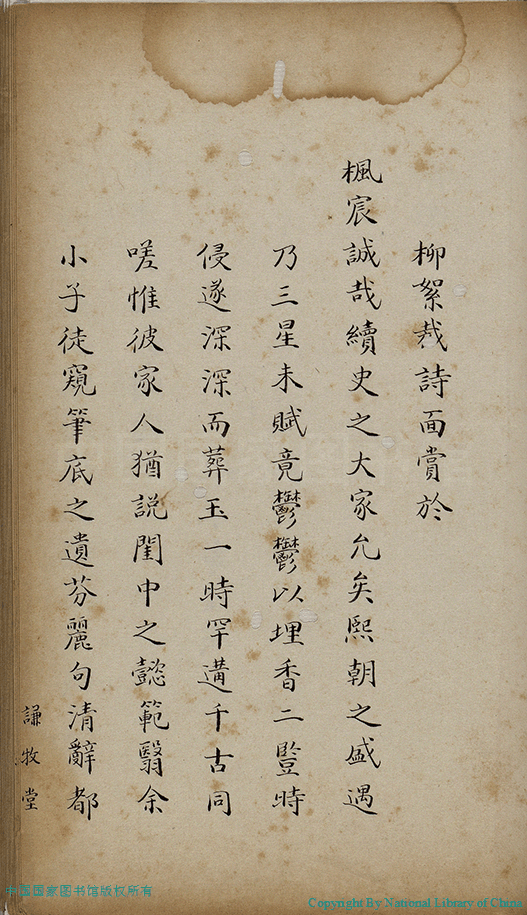 柳絮裁詩面賞於
楓宸誠哉續史之大家允矣熙朝之盛遇
乃三星未賦竟鬱鬱以埋香二豎時
侵遂深深而葬玉一時罕遘千古同
嗟惟彼家人猶說閨中之懿範翳余
小子徒窺筆底之遺芬麗句清辭都
謙牧堂
中国国家图书馆版权所有
Copyright By National Library of China